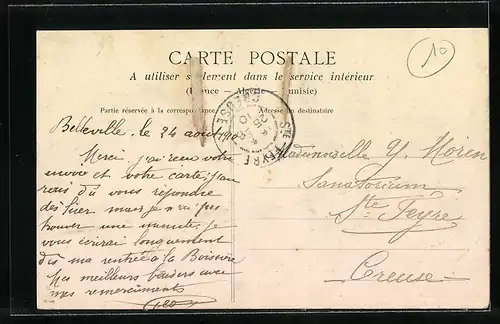 CARTE POSTALE
A utiliser seulement dans le service intérieur
(France — Algérie — Tunisie)
Partie réservée à la correspondance
Adresse du destinataire
10
STE FEYRE
CREUSE
25
Belleville, le 24 août 10
Merci j'ai reçu votre
envoie et votre carte, j'au
rais dû vous répondre
dès hier mais je n'ai pas
trouver une minute, je
vous écrirai longuement
dès ma rentrée à la Boissière
Mes meilleurs baisers avec
mes remerciments
Mademoiselle Y. Moren
Sanatorium
Ste Feyre
Creuse